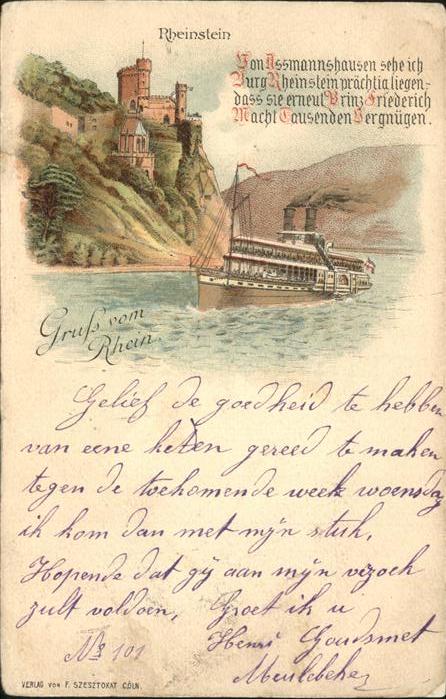 Rheinstein
Von Assmannshausen sehe ich
Burg Rheinstein prächtig liegen,
dass sie erneut Prinz Friederich
Macht Tausenden Vergnügen.
Gruß vom
Rhein.
Gelief de goedheid te hebben
van eene keten gereed te maken
tegen de toekomende week woensdag
ik kom dan met mijn stuk,
Hopende dat gij aan mijn vizoek
zult voldoen, Groet ik u
Henri Goudsmet
No 101
Meulebeke
VERLAG VON F. SZESZTOKAT CÖLN.